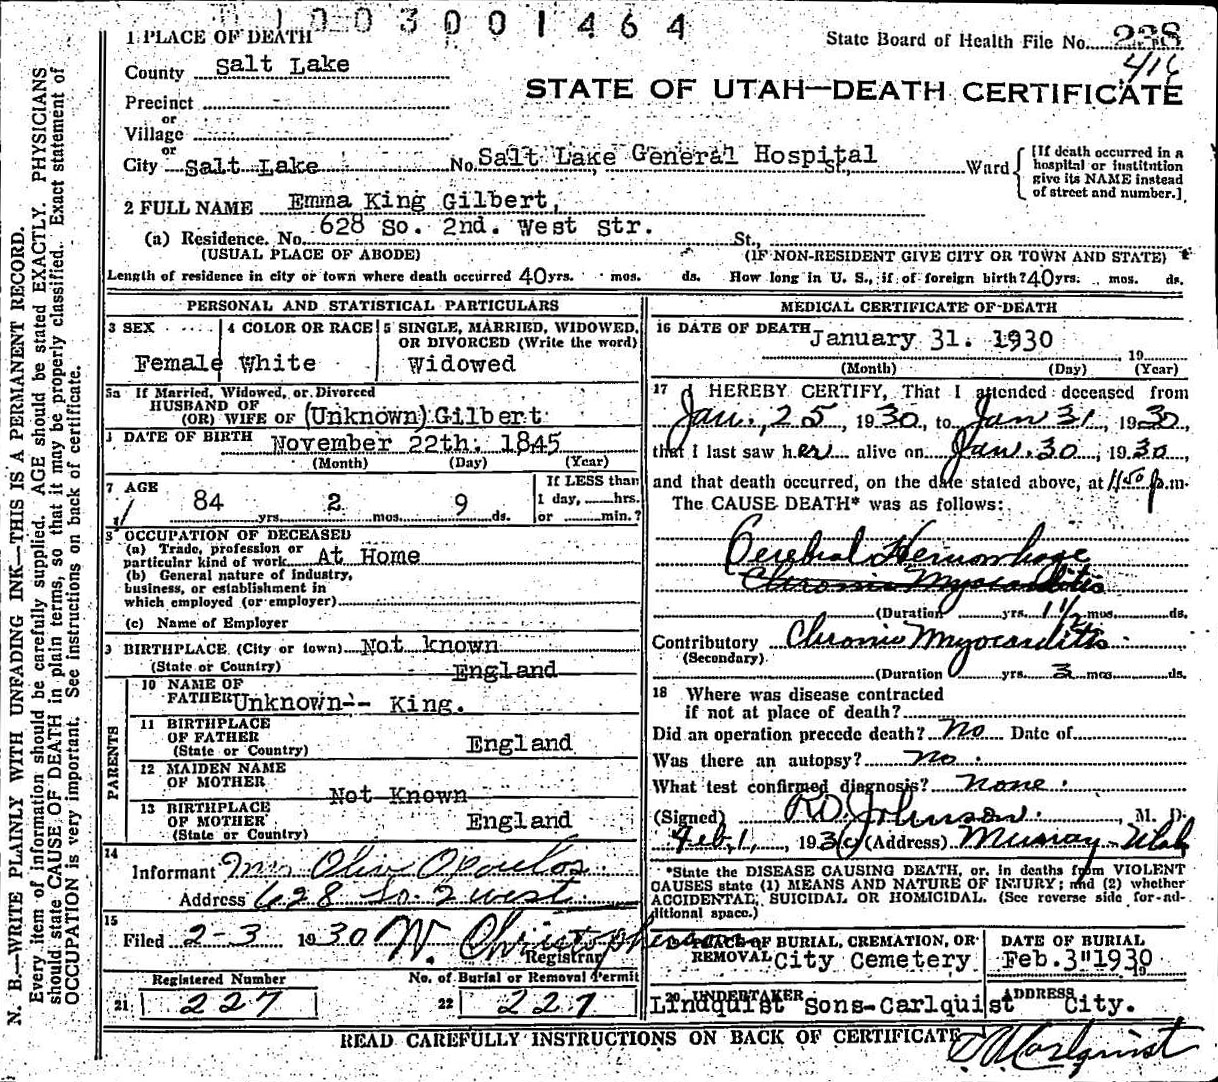 1003001464
State Board of Health File No. 238
416
STATE OF UTAH—DEATH CERTIFICATE
1 PLACE OF DEATH
County Salt Lake
Precinct
or
Village
or
City Salt Lake No. Salt Lake General Hospital St., Ward
[If death occurred in a
hospital or institution
give its NAME instead
of street and number.]
2 FULL NAME Emma King Gilbert,
(a) Residence. No. 628 So. 2nd. West Str. St.,
(USUAL PLACE OF ABODE) (IF NON-RESIDENT GIVE CITY OR TOWN AND STATE)
Length of residence in city or town where death occurred 40 yrs. mos. ds. How long in U. S., if of foreign birth? 40 yrs. mos. ds.
PERSONAL AND STATISTICAL PARTICULARS
3 SEX 4 COLOR OR RACE 5 SINGLE, MARRIED, WIDOWED,
OR DIVORCED (Write the word)
Female White Widowed
5a If Married, Widowed, or Divorced
HUSBAND OF
(OR) WIFE OF (Unknown) Gilbert
DATE OF BIRTH November 22th. 1845
(Month) (Day) (Year)
7 AGE If LESS than
1 day, hrs.
84 yrs. 2 mos. 9 ds. or min.?
8 OCCUPATION OF DECEASED
(a) Trade, profession or
particular kind of work At Home
(b) General nature of industry,
business, or establishment in
which employed (or employer)
(c) Name of Employer
9 BIRTHPLACE (City or town) Not known
(State or Country) England
PARENTS
10 NAME OF
FATHER Unknown-- King.
11 BIRTHPLACE
OF FATHER England
(State or Country)
12 MAIDEN NAME
OF MOTHER Not Known
13 BIRTHPLACE
OF MOTHER England
(State or Country)
14
Informant Mrs Olive Opoulos
Address 628 So. 2 West
15
Filed 2-3 1930 W. Christopherson
Registrar
Registered Number No. of Burial or Removal Permit
21 227 22 227
MEDICAL CERTIFICATE OF DEATH
16 DATE OF DEATH January 31. 1930 , 19
(Month) (Day) (Year)
17 I HEREBY CERTIFY, That I attended deceased from
Jan., 25, 1930, to Jan 31, 1930,
that I last saw her alive on Jan. 30, 1930,
and that death occurred, on the date stated above, at 11:50 p.m.
The CAUSE DEATH* was as follows:
Cerebral Hemorrhage
Chronic Myocarditis
(Duration yrs. 1 1/2 mos. ds.
Contributory Chronic Myocarditis
(Secondary)
(Duration yrs. 3 mos. ds.
18 Where was disease contracted
if not at place of death?
Did an operation precede death? No Date of
Was there an autopsy? No.
What test confirmed diagnosis? None.
(Signed) R.D. Johnson, M. D.
Feb. 1, 1930 (Address) Murray - Utah
*State the DISEASE CAUSING DEATH, or, in deaths from VIOLENT
CAUSES state (1) MEANS AND NATURE OF INJURY; and (2) whether
ACCIDENTAL, SUICIDAL OR HOMICIDAL. (See reverse side for additional space.)
PLACE OF BURIAL, CREMATION, OR DATE OF BURIAL
REMOVAL City Cemetery Feb. 3" 1930 19
20 UNDERTAKER ADDRESS
Lindquist Sons-Carlquist City.
READ CAREFULLY INSTRUCTIONS ON BACK OF CERTIFICATE
Carlquist
N. B.—WRITE PLAINLY WITH UNFADING INK—THIS IS A PERMANENT RECORD.
Every item of information should be carefully supplied. AGE should be stated EXACTLY. PHYSICIANS
should state CAUSE OF DEATH in plain terms, so that it may be properly classified. Exact statement of
OCCUPATION is very important. See instructions on back of certificate.